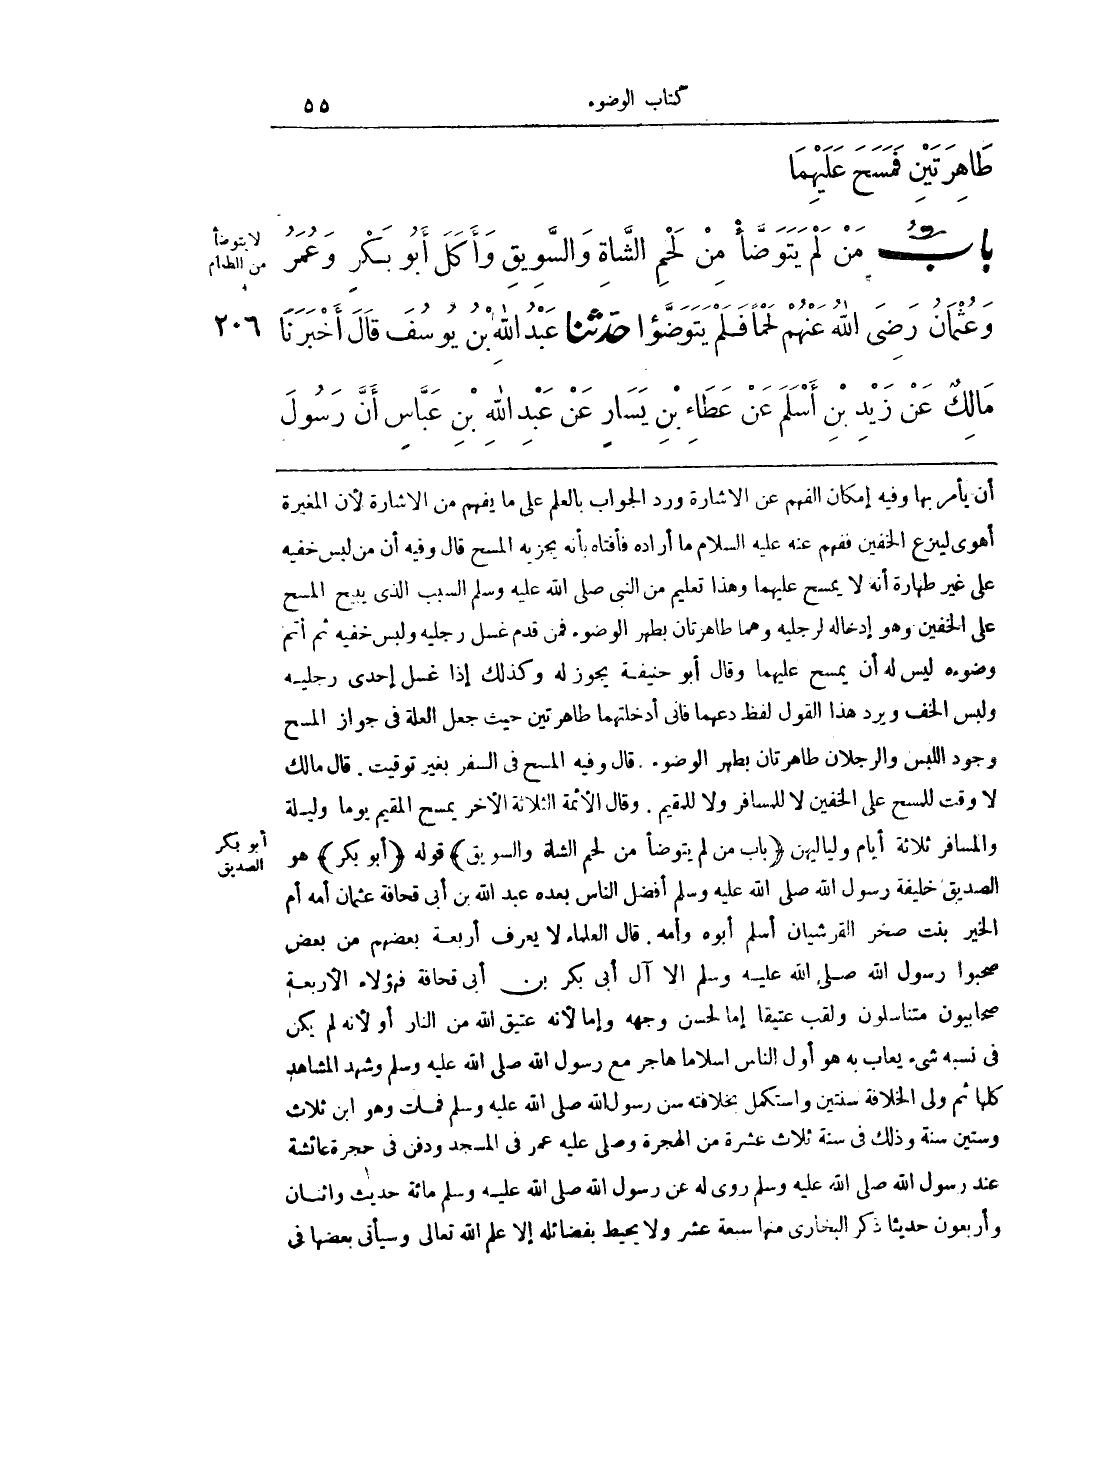 كتاب الوضوء ٥٥
طَاهِرَتَيْنِ فَمَسَحَ عَلَيْهِمَا
بَابُ مَنْ لَمْ يَتَوَضَّأْ مِنْ لَحْمِ الشَّاةِ وَالسَّوِيقِ وَأَكَلَ أَبُو بَكْرٍ وَعُمَرُ
لا يتوضأ
من الطعام
وَعُثْمَانُ رَضِىَ اللّٰهُ عَنْهُمْ لَحْمًا فَلَمْ يَتَوَضَّؤُا حدثنا عَبْدُ اللّٰهِ بْنُ يُوسُفَ قَالَ أَخْبَرَنَا
٢٠٦
مَالِكٌ عَنْ زَيْدِ بْنِ أَسْلَمَ عَنْ عَطَاءِ بْنِ يَسَارٍ عَنْ عَبْدِ اللّٰهِ بْنِ عَبَّاسٍ أَنَّ رَسُولَ
أن يأمر بها وفيه إمكان الفهم عن الاشارة ورد الجواب بالعلم على ما يفهم من الاشارة لأن المغيرة
أهوى لينزع الخفين ففهم عنه عليه السلام ما أراده فأفتاه بأنه يجزيه المسح قال وفيه أن من لبس خفيه
على غير طهارة أنه لا يمسح عليهما وهذا تعليم من النبى صلى الله عليه وسلم السبب الذى يبيح المسح
على الخفين وهو إدخاله لرجليه وهما طاهرتان بطهر الوضوء فمن قدم غسل رجليه ولبس خفيه ثم أتم
وضوءه ليس له أن يمسح عليهما وقال أبو حنيفة يجوز له وكذلك إذا غسل إحدى رجليه
ولبس الخف ويرد هذا القول لفظ دعهما فانى أدخلتهما طاهرتين حيث جعل العلة فى جواز المسح
وجود اللبس والرجلان طاهرتان بطهر الوضوء . قال وفيه المسح فى السفر بغير توقيت . قال مالك
لا وقت للمسح على الخفين لا للمسافر ولا للمقيم . وقال الأئمة الثلاثة الأخر يمسح المقيم يوما وليلة
والمسافر ثلاثة أيام ولياليهن (باب من لم يتوضأ من لحم الشاة والسويق) قوله (أبو بكر) هو
أبو بكر
الصديق
الصديق خليفة رسول الله صلى الله عليه وسلم أفضل الناس بعده عبد الله بن أبى قحافة عثمان أمه أم
الخير بنت صخر القرشيان أسلم أبوه وأمه . قال العلماء لا يعرف أربعة بعضهم من بعض
صحبوا رسول الله صلى الله عليه وسلم الا آل أبى بكر بن أبى قحافة فهؤلاء الأربعة
صحابيون متناسلون ولقب عتيقا إما لحسن وجهه وإما لأنه عتيق الله من النار أو لأنه لم يكن
فى نسبه شىء يعاب به هو أول الناس اسلاما هاجر مع رسول الله صلى الله عليه وسلم وشهد المشاهد
كلها ثم ولى الخلافة سنتين واستكمل بخلافته سن رسول الله صلى الله عليه وسلم فمات وهو ابن ثلاث
وستين سنة وذلك فى سنة ثلاث عشرة من الهجرة وصلى عليه عمر فى المسجد ودفن فى حجرة عائشة
عند رسول الله صلى الله عليه وسلم روى له عن رسول الله صلى الله عليه وسلم مائة حديث واثنان
وأربعون حديثا ذكر البخارى منها سبعة عشر ولا يحيط بفضائله إلا علم الله تعالى وسيأتى بعضها فى